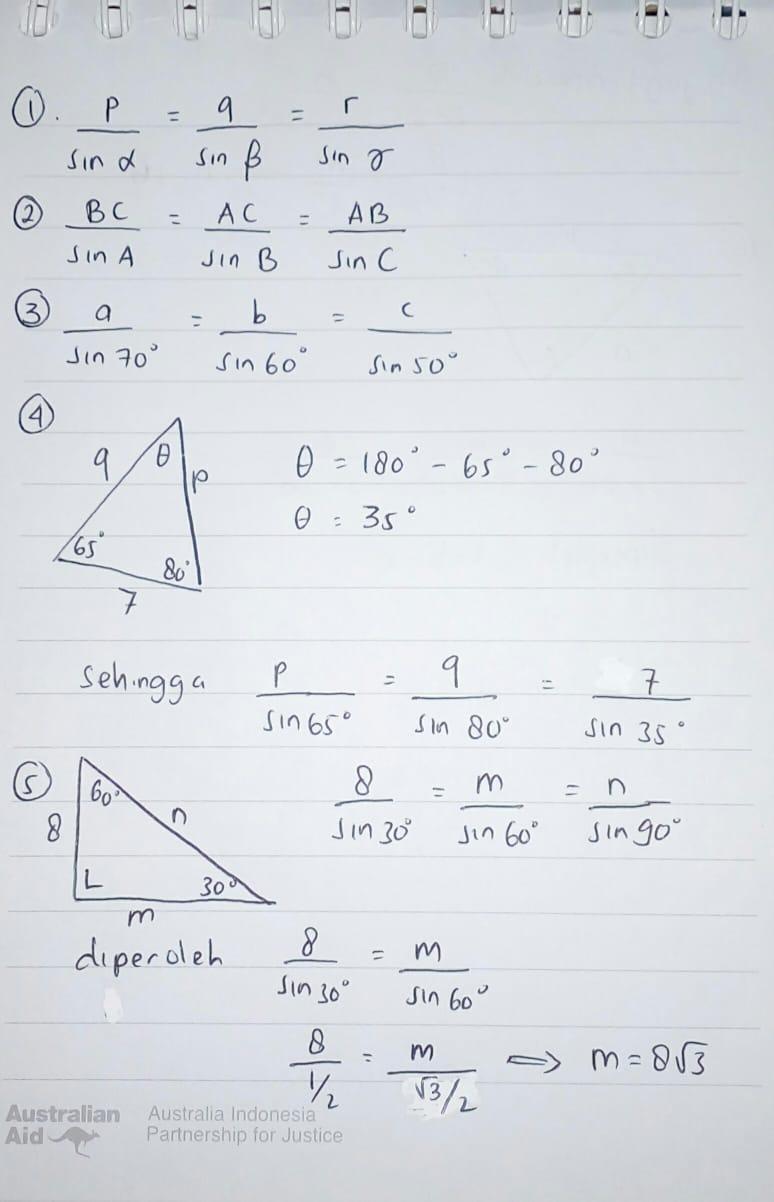 ①. p/sin α = q/sin β = r/sin γ
② BC/sin A = AC/sin B = AB/sin C
③ a/sin 70° = b/sin 60° = c/sin 50°
④
9 θ p
65° 80°
7
θ = 180° - 65° - 80°
θ = 35°
sehingga p/sin 65° = 9/sin 80° = 7/sin 35°
⑤
60° n
8
30°
m
8/sin 30° = m/sin 60° = n/sin 90°
diperoleh 8/sin 30° = m/sin 60°
8/1/2 = m/√3/2 ⟹ m = 8√3
Australian Aid
Australia Indonesia
Partnership for Justice